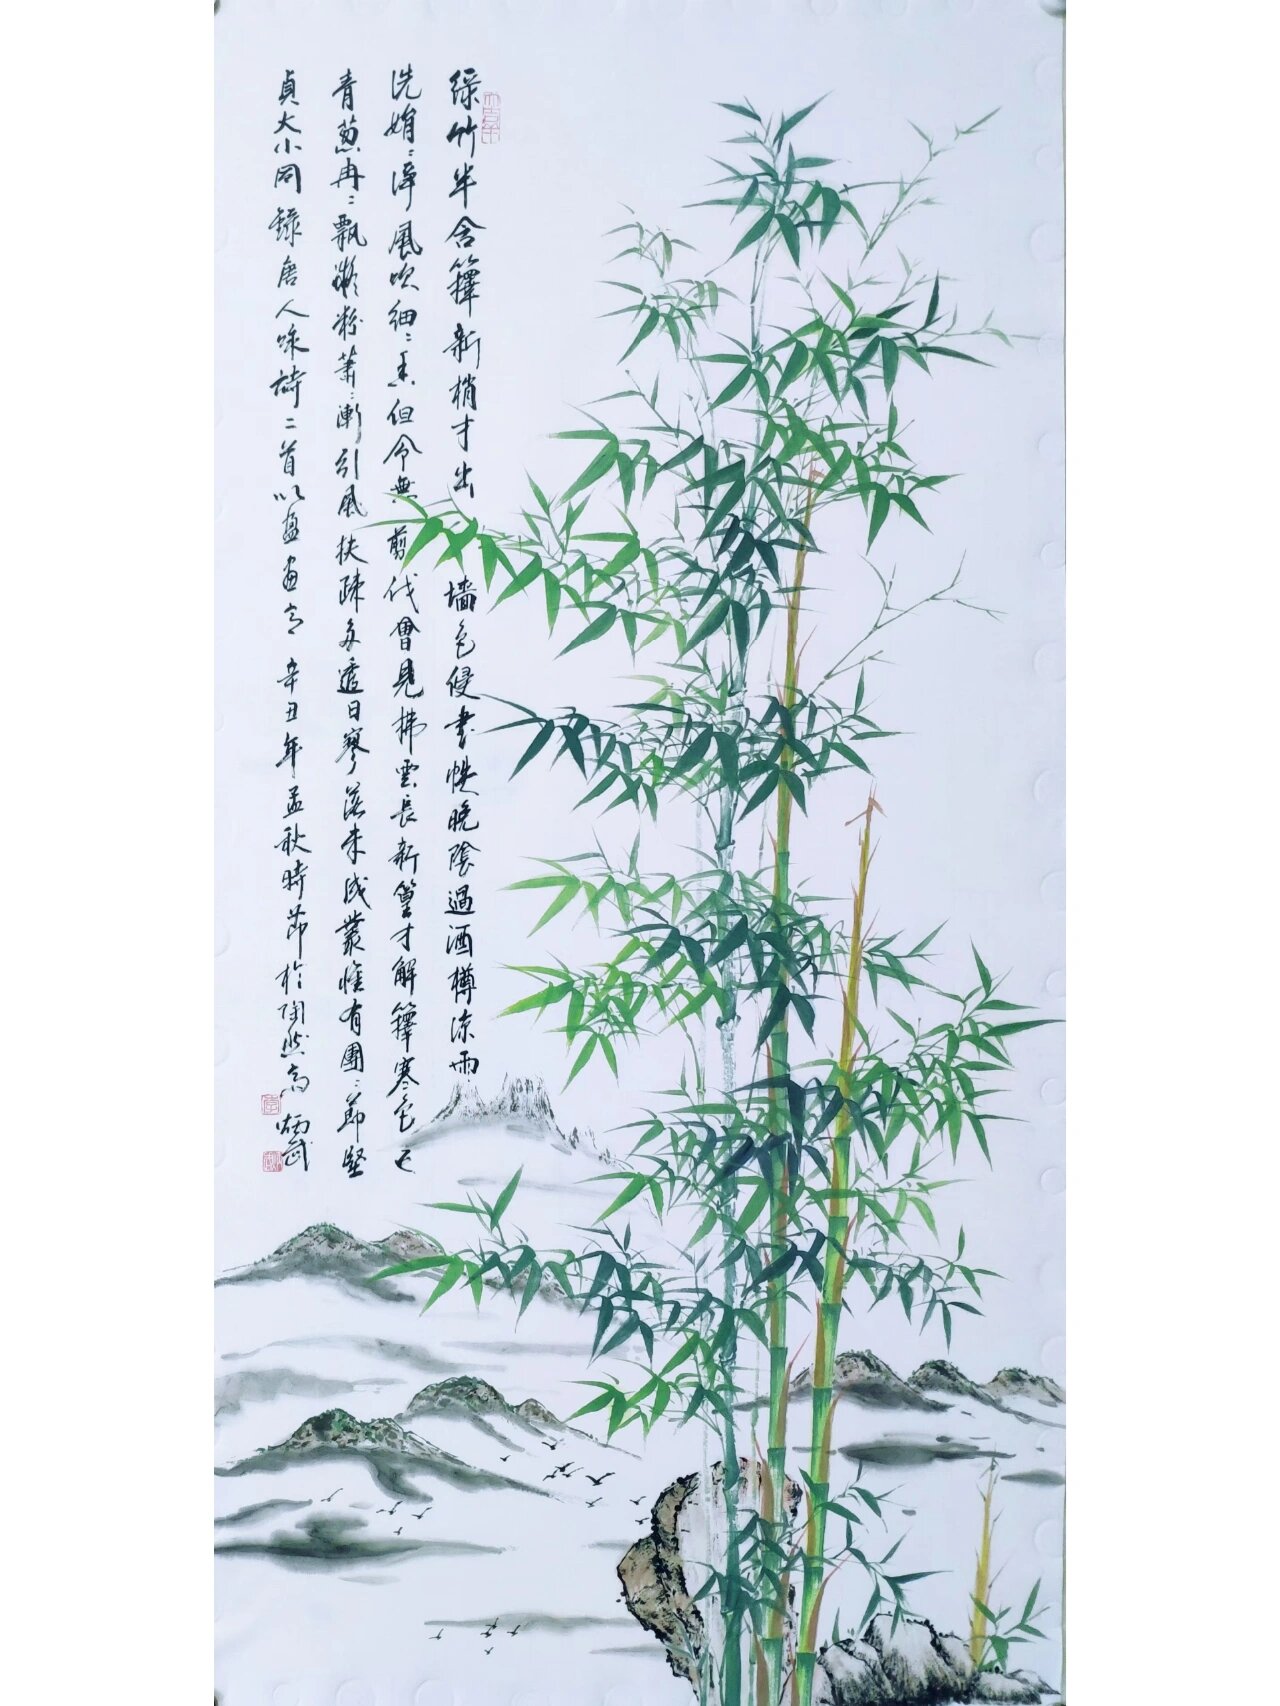 綠竹半含籜新梢才出墙色侵書帙晚陰過酒樽涼雨
洗娟〻淨風吹細〻香但令無剪伐會見拂雲長新篁才解籜寒色已
青葱冉〻飄凝粉蕭〻漸引風扶疎多透日寥落未成叢惟有團〻節堅
貞大小同錄唐人咏詩二首以益畫 辛丑年孟秋時節於陶然 炳武